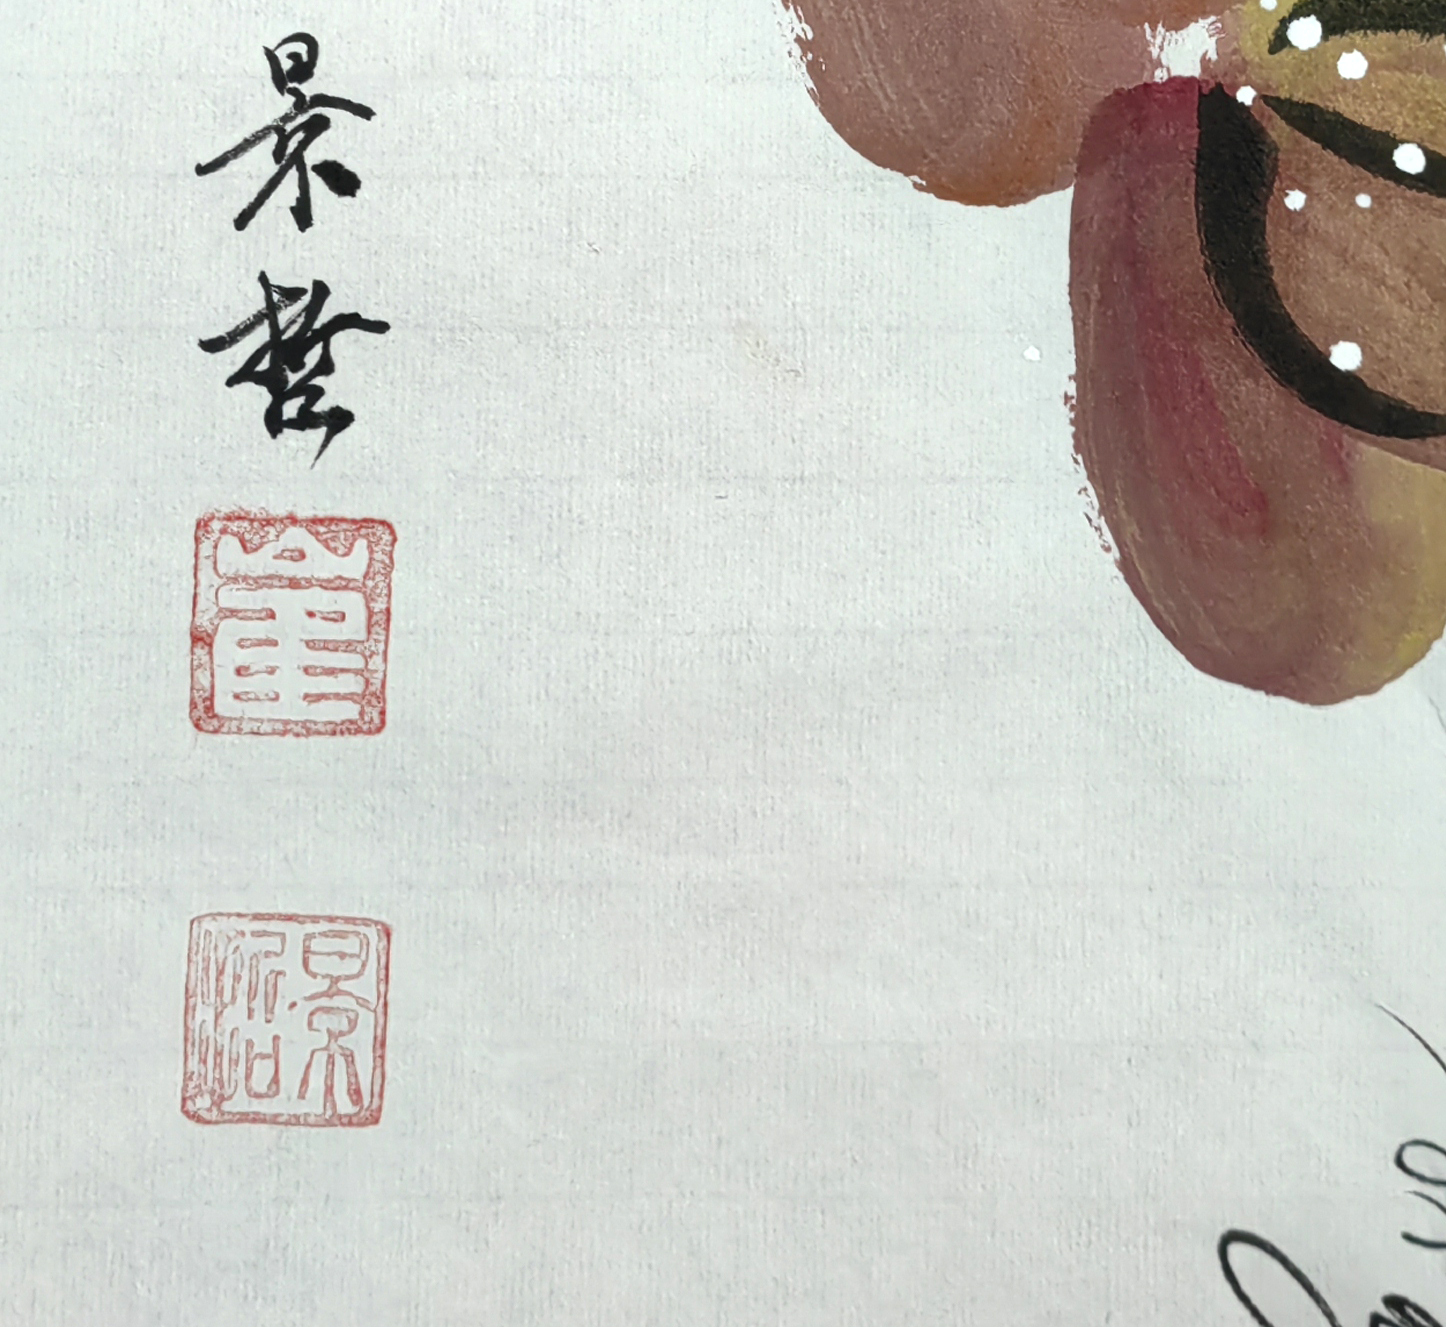 景哲
崔
景哲